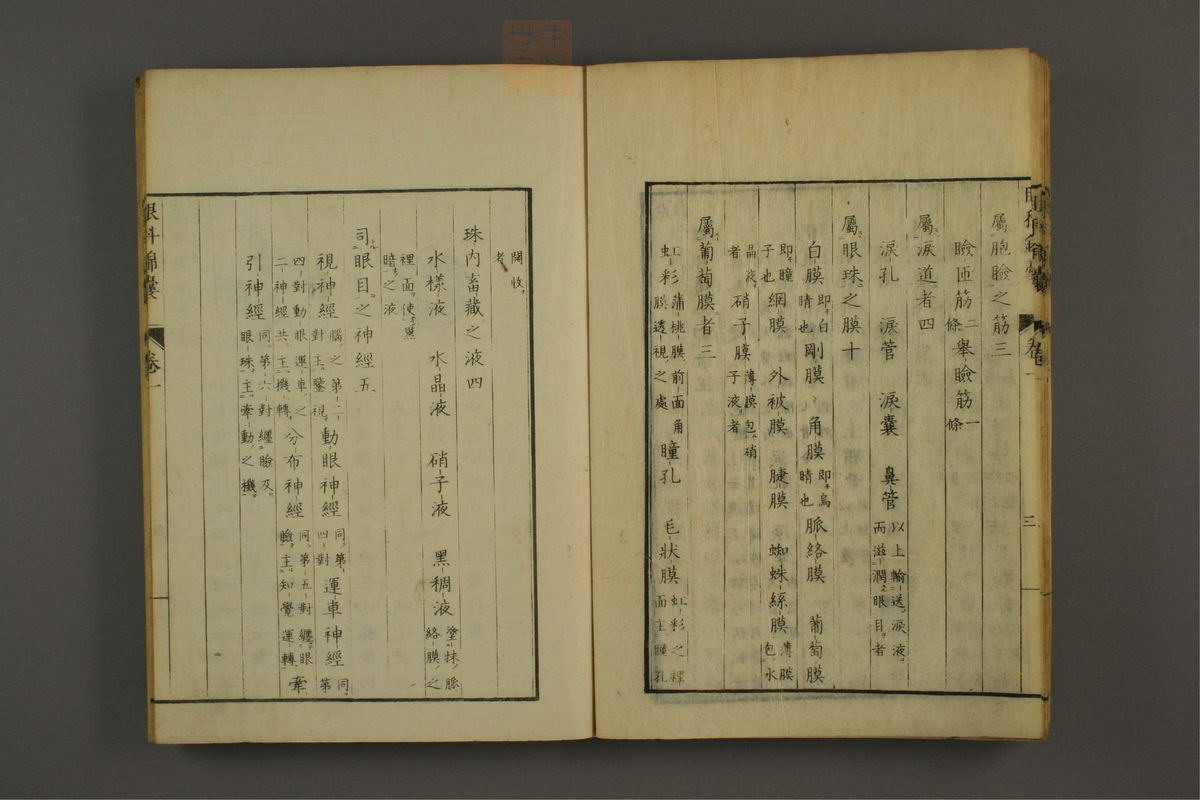 屬胞瞼之筋三
瞼匝筋二條 擧瞼筋一條
屬涙道者四
涙孔 涙管 涙囊 鼻管以上輸送涙液而滋潤眼目者
屬眼珠之膜十
白膜即白睛也 剛膜 角膜即烏睛也 脈絡膜 葡萄膜
即瞳子也 網膜 外被膜 睫膜 蜘蛛絲膜薄膜包水
晶液者 硝子膜薄膜包硝子液者
屬葡萄膜者三
虹彩蒲桃膜前面角膜透視之處 瞳孔 毛狀膜虹彩之裡面主瞳孔
開收者
珠内畜藏之液四
水樣液 水晶液 硝子液 黑稠液塗抹脈絡膜之
裡面使黑暗之液
司眼目之神經五
視神經腦之第二對主鑒視 動眼神經同第四對 運車神經同第
四對動眼運車之二神經共主機轉 分布神經同第五對纏眼瞼主知覺運轉 牽
引神經同第六對纏瞼及眼珠主牽動之機
眼科錦囊 卷一
三
眼科錦囊 卷一